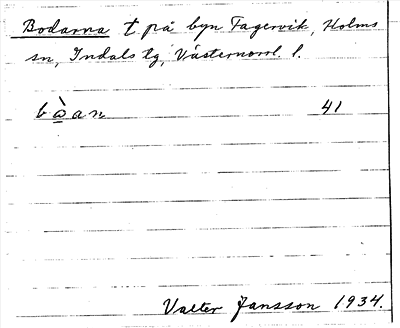 Bodarna t. på byn Fagervik, Holms
sn, Indals tg, Västernorrl l.
bàan 41
Valter Jansson 1934.